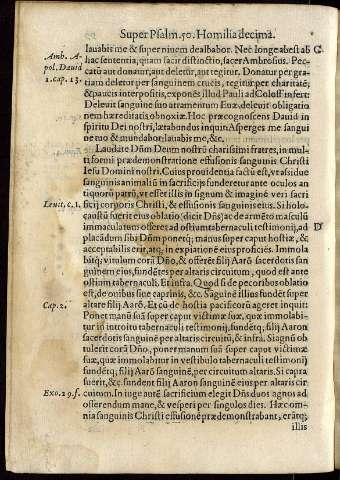 Super Psalm. 50. Homilia decima.
lauabis me & super niuem dealbabor. Nec longe abest ab C
hac sententia, quam sacir distinctio, sacer Ambrosius. Pec-
Amb. A-
pol. Dauid
1. cap. 13.
catũ aut donatur, aut deletur, aut tegitur. Donatur per gra-
tiam deletur per sanguinem crucis, tegitur per charitatẽ:
& paucis interpositis, exponẽs illud Pauli ad Coloss. infert:
Deleuit sanguine suo atramentum Euæ, deleuit obligatio
nem hæreditatis obnoxiæ. Hoc præcognoscens Dauid in
spiritu Dei nostri, lætabundus inquit: Asperges me sangui
ne tuo & mundabor: lauabis me, &c.
Laudate Dñm Deum nostrũ charissimi fratres, in mul-
ti formi prædemonstratione effusionis sanguinis Christi
Iesu Domini nostri. Cuius prouidentia factũ est, vt assidue
sanguis animaliũ in sacrificijs funderetur ante oculos an
tiquorũ patrũ, vt esset illis in signum & imaginẽ veri sacri
Leuit. c. 1.
ficij corporis Christi, & effusionis sanguinis eius. Si holo-
caustũ fuerit eius oblatio (dicit Dñs) ac de armẽto masculũ
immaculatum offeret ad ostium tabernaculi testimonij, ad D
placãdum sibi Dñm ponetq; manus super caput hostiæ, &
acceptabilis erit, atq; in expiationẽ eius proficiẽs. Immola
bitq; vitulum corã Dño, & offerẽt filij Aarõ sacerdotis san
guinem eius, fundẽtes per altaris circuitum, quod est ante
ostium tabernaculi. Et infra. Quod si de pecoribus oblatio
est, de ouibus siue caprinis, &c. Sãguinẽ illius fundẽt super
Cap. 2.
altare filij Aarõ. Et cũ de hostia pacificorũ ageret inquit:
Ponet manũ suã super caput victimæ suæ, quæ immolabi-
tur in introitu tabernaculi testimonij, fundẽtq; filij Aaron
sacerdotis sanguinẽ per altaris circuitũ, & infra. Si agnũ ob
tulerit corã Dño, ponet manum suã super caput victimæ
suæ, quæ immolabitur in vestibulo tabernaculi testimonij
fundẽtq; filij Aarõ sanguinẽ, per circuitum altaris. Si capra
fuerit, &c. fundent filij Aaron sanguinem eius per altaris cir
Exo. 29. f.
cuitum. In iuge autẽ sacrificium elegit Dñs duos agnos ad
offerendum mane, & vesperi per singulos dies. Hæc om-
nia sanguinis Christi effusionẽ prædemonstrabant, erãtq;
illis